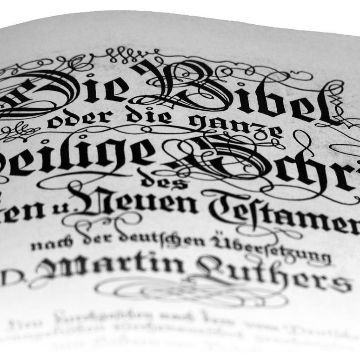 Die Bibel
oder die ganze
eilige Schri
des
ten u Neuen Testamen
nach der deutſchen Überſetzung
D. Martin Luthers